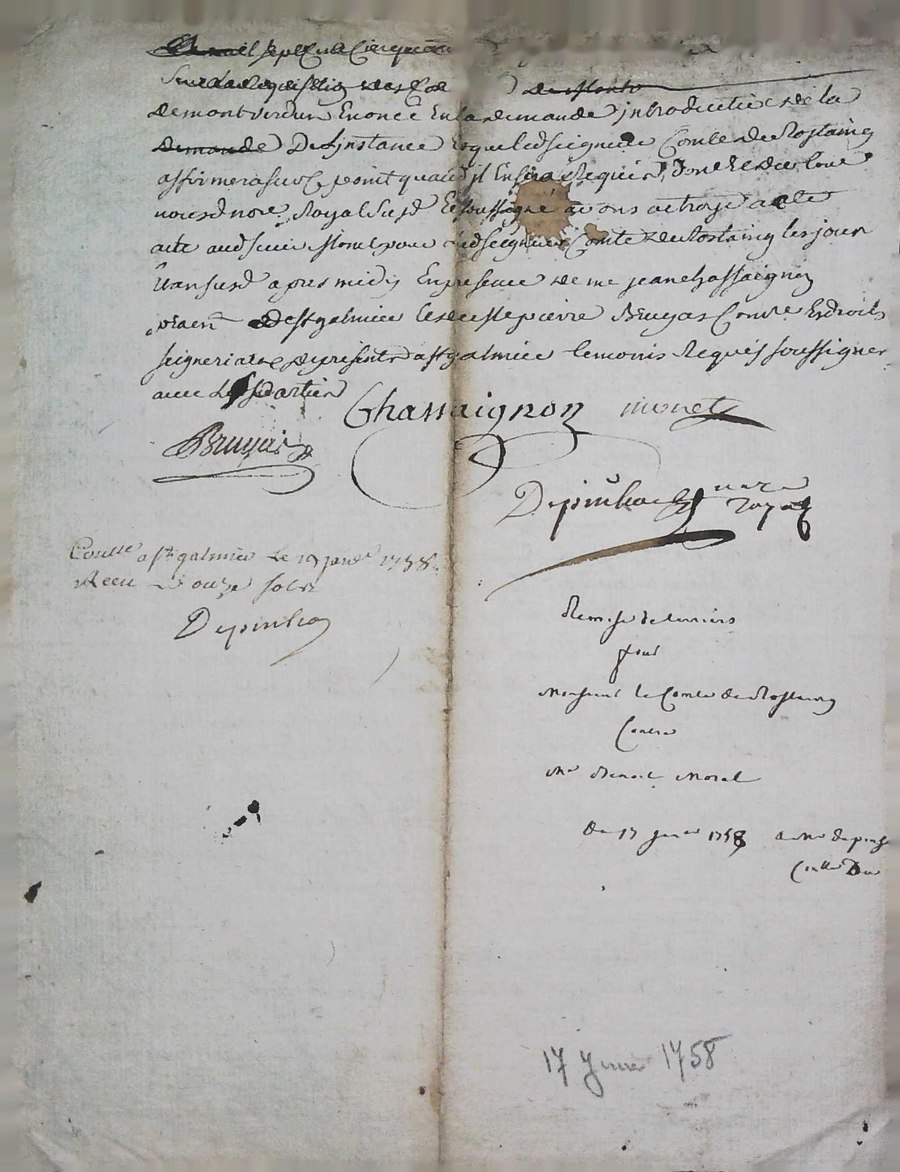 mil sept cent cinquante
de montverdun Enoncé En la demande introductive de la
demande D'instance Et que led seigneur Comte de Rostaing
affirmera sur ce point quand il En sera Requis, Dont Et de tout
notre Royal susd Et soussigné avons octroyé acte
acte aud sieur pour led seigneur Comte de Rostaing les jour
Et an susd après midy En presence de me jean chassaignon
de st galmier Et de st pierre Bruyas Comre Es droits
seigneriaux de present a st galmier temoins Requis soussignez
avec les parties
Chassaignon monet
Bruyas
Depinhac nore Royal
Contlé a st galmier le 19 janv 1758
Receu Douze sols
Depinhac
Remise de terriers
pour
Monsieur le Comte de Rostaing
Contre
Mr Benoit Morel
Du 17 janer 1758
17 Janv 1758